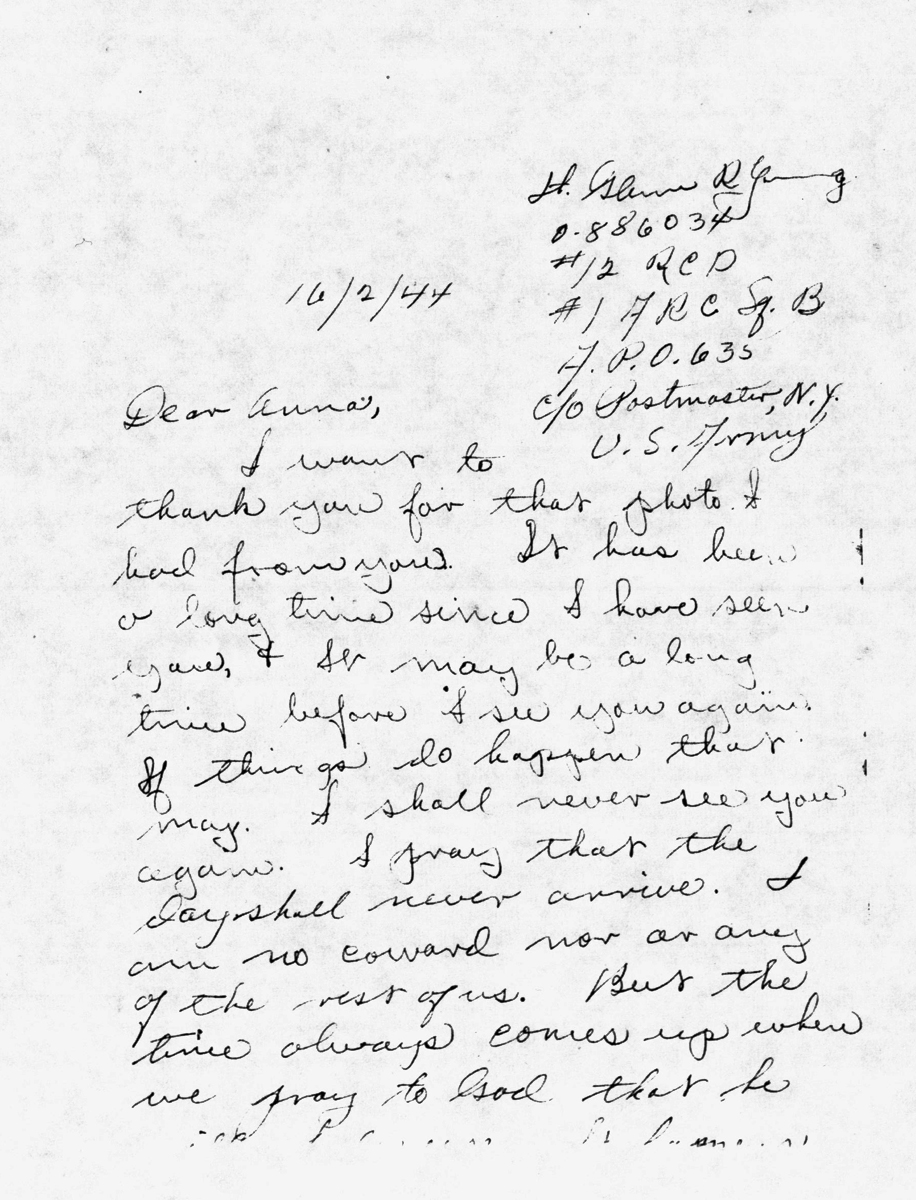 Lt. Glenn R Young
0-886034
#12 RCD
16/2/44
#1 FRC Sq. B
A.P.O. 635
Dear Anna,
c/o Postmaster, N.Y.
U.S. Army
I want to
thank you for that photo I
had from you. It has been
a long time since I have seen
you, & It may be a long
time before I see you again.
If things do happen that
may. I shall never see you
again. I pray that the
day shall never arrive. I
am no coward nor ar any
of the rest of us. But the
time always comes up when
we pray to God that he